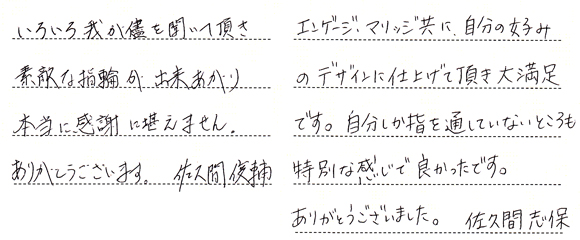 いろいろ我が儘を聞いて頂き
素敵な指輪が出来あがり
本当に感謝に堪えません。
ありがとうございます。 佐久間俊輔
エンゲージ、マリッジ共に、自分の好み
のデザインに仕上げて頂き大満足
です。自分しか指を通していないところも
特別な感じで良かったです。
ありがとうございました。 佐久間志保